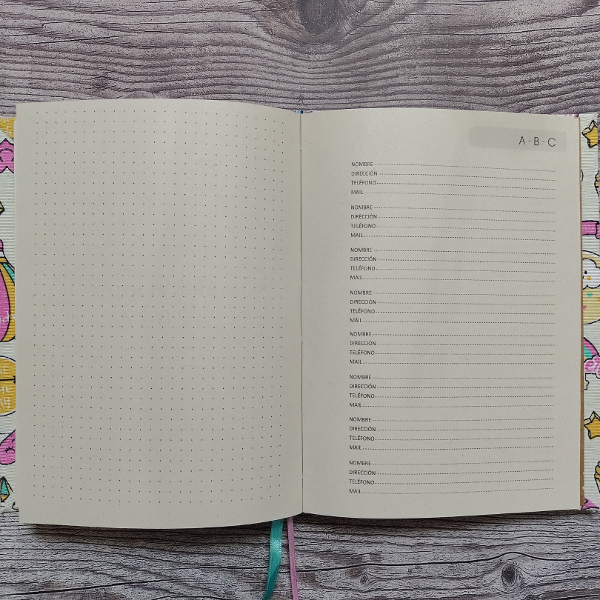 A - B - C
NOMBRE
DIRECCIÓN
TELÉFONO
MAIL
NOMBRE
DIRECCIÓN
TELÉFONO
MAIL
NOMBRE
DIRECCIÓN
TELÉFONO
MAIL
NOMBRE
DIRECCIÓN
TELÉFONO
MAIL
NOMBRE
DIRECCIÓN
TELÉFONO
MAIL
NOMBRE
DIRECCIÓN
TELÉFONO
MAIL
NOMBRE
DIRECCIÓN
TELÉFONO
MAIL
NOMBRE
DIRECCIÓN
TELÉFONO
MAIL